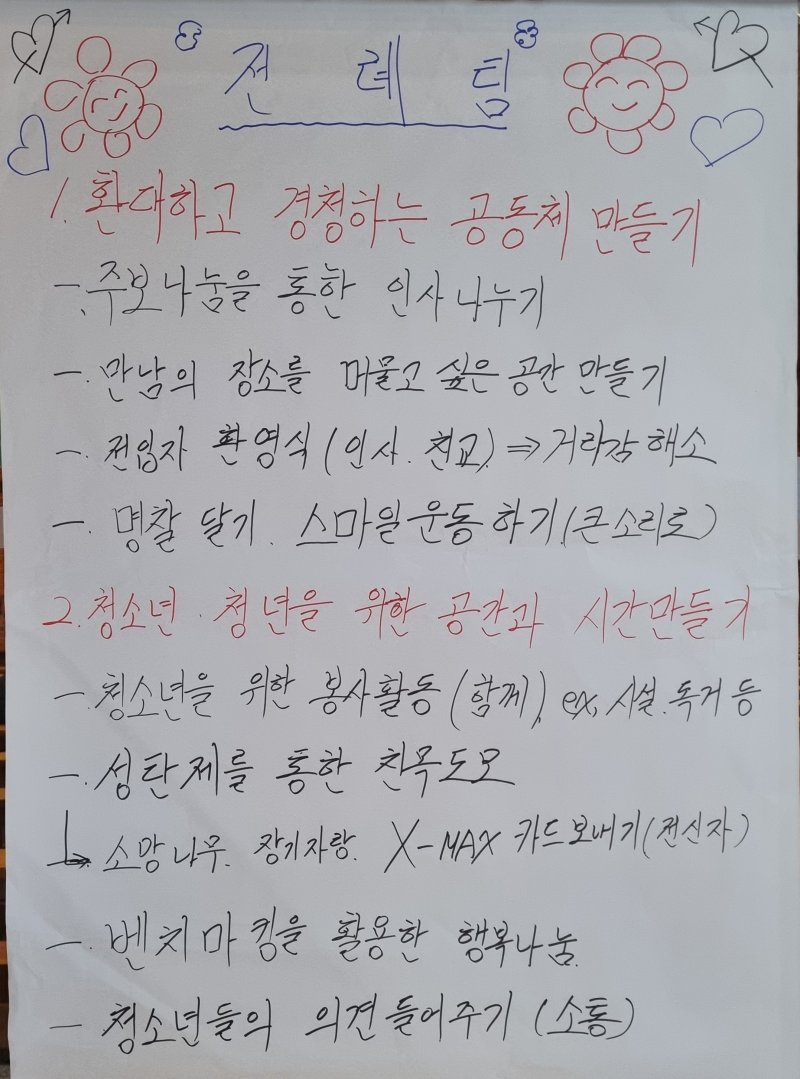 전 례 팀
1. 환대하고 경청하는 공동체 만들기
- 주보나눔을 통한 인사 나누기
- 만남의 장소를 머물고 싶은 공간 만들기
- 전입자 환영식(인사. 친교) ⇒ 거리감 해소
- 명찰 달기. 스마일 운동하기(큰소리로)
2. 청소년·청년을 위한 공간과 시간만들기
- 청소년을 위한 봉사활동(함께), ex, 시설.독거 등
- 성탄제를 통한 친목도모
↳ 소망나무. 장기자랑. X-MAX 카드보내기(전신자)
- 벤치마킹을 활용한 행복나눔.
- 청소년들의 의견 들어주기 (소통)